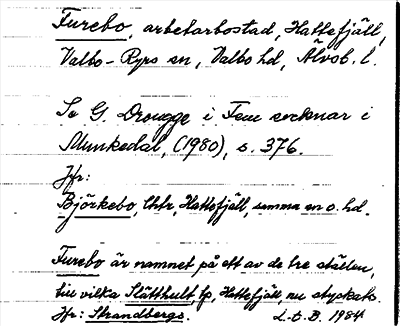 Furebo, arbetarbostad, Hattefjäll,
Valbo-Ryrs sn, Valbo hd, Älvsb. l.
Se G. Drougge i Fem socknar i
Munkedal, (1980), s. 376.
Jfr:
Björkebo, lhtr, Hattefjäll, samma sn o. hd.
Furebo är namnet på ett av de tre ställen,
till vilka Slätthult, tp, Hattefjäll, nu styckats.
Jfr: Strandbergs. L.t.B. 1984